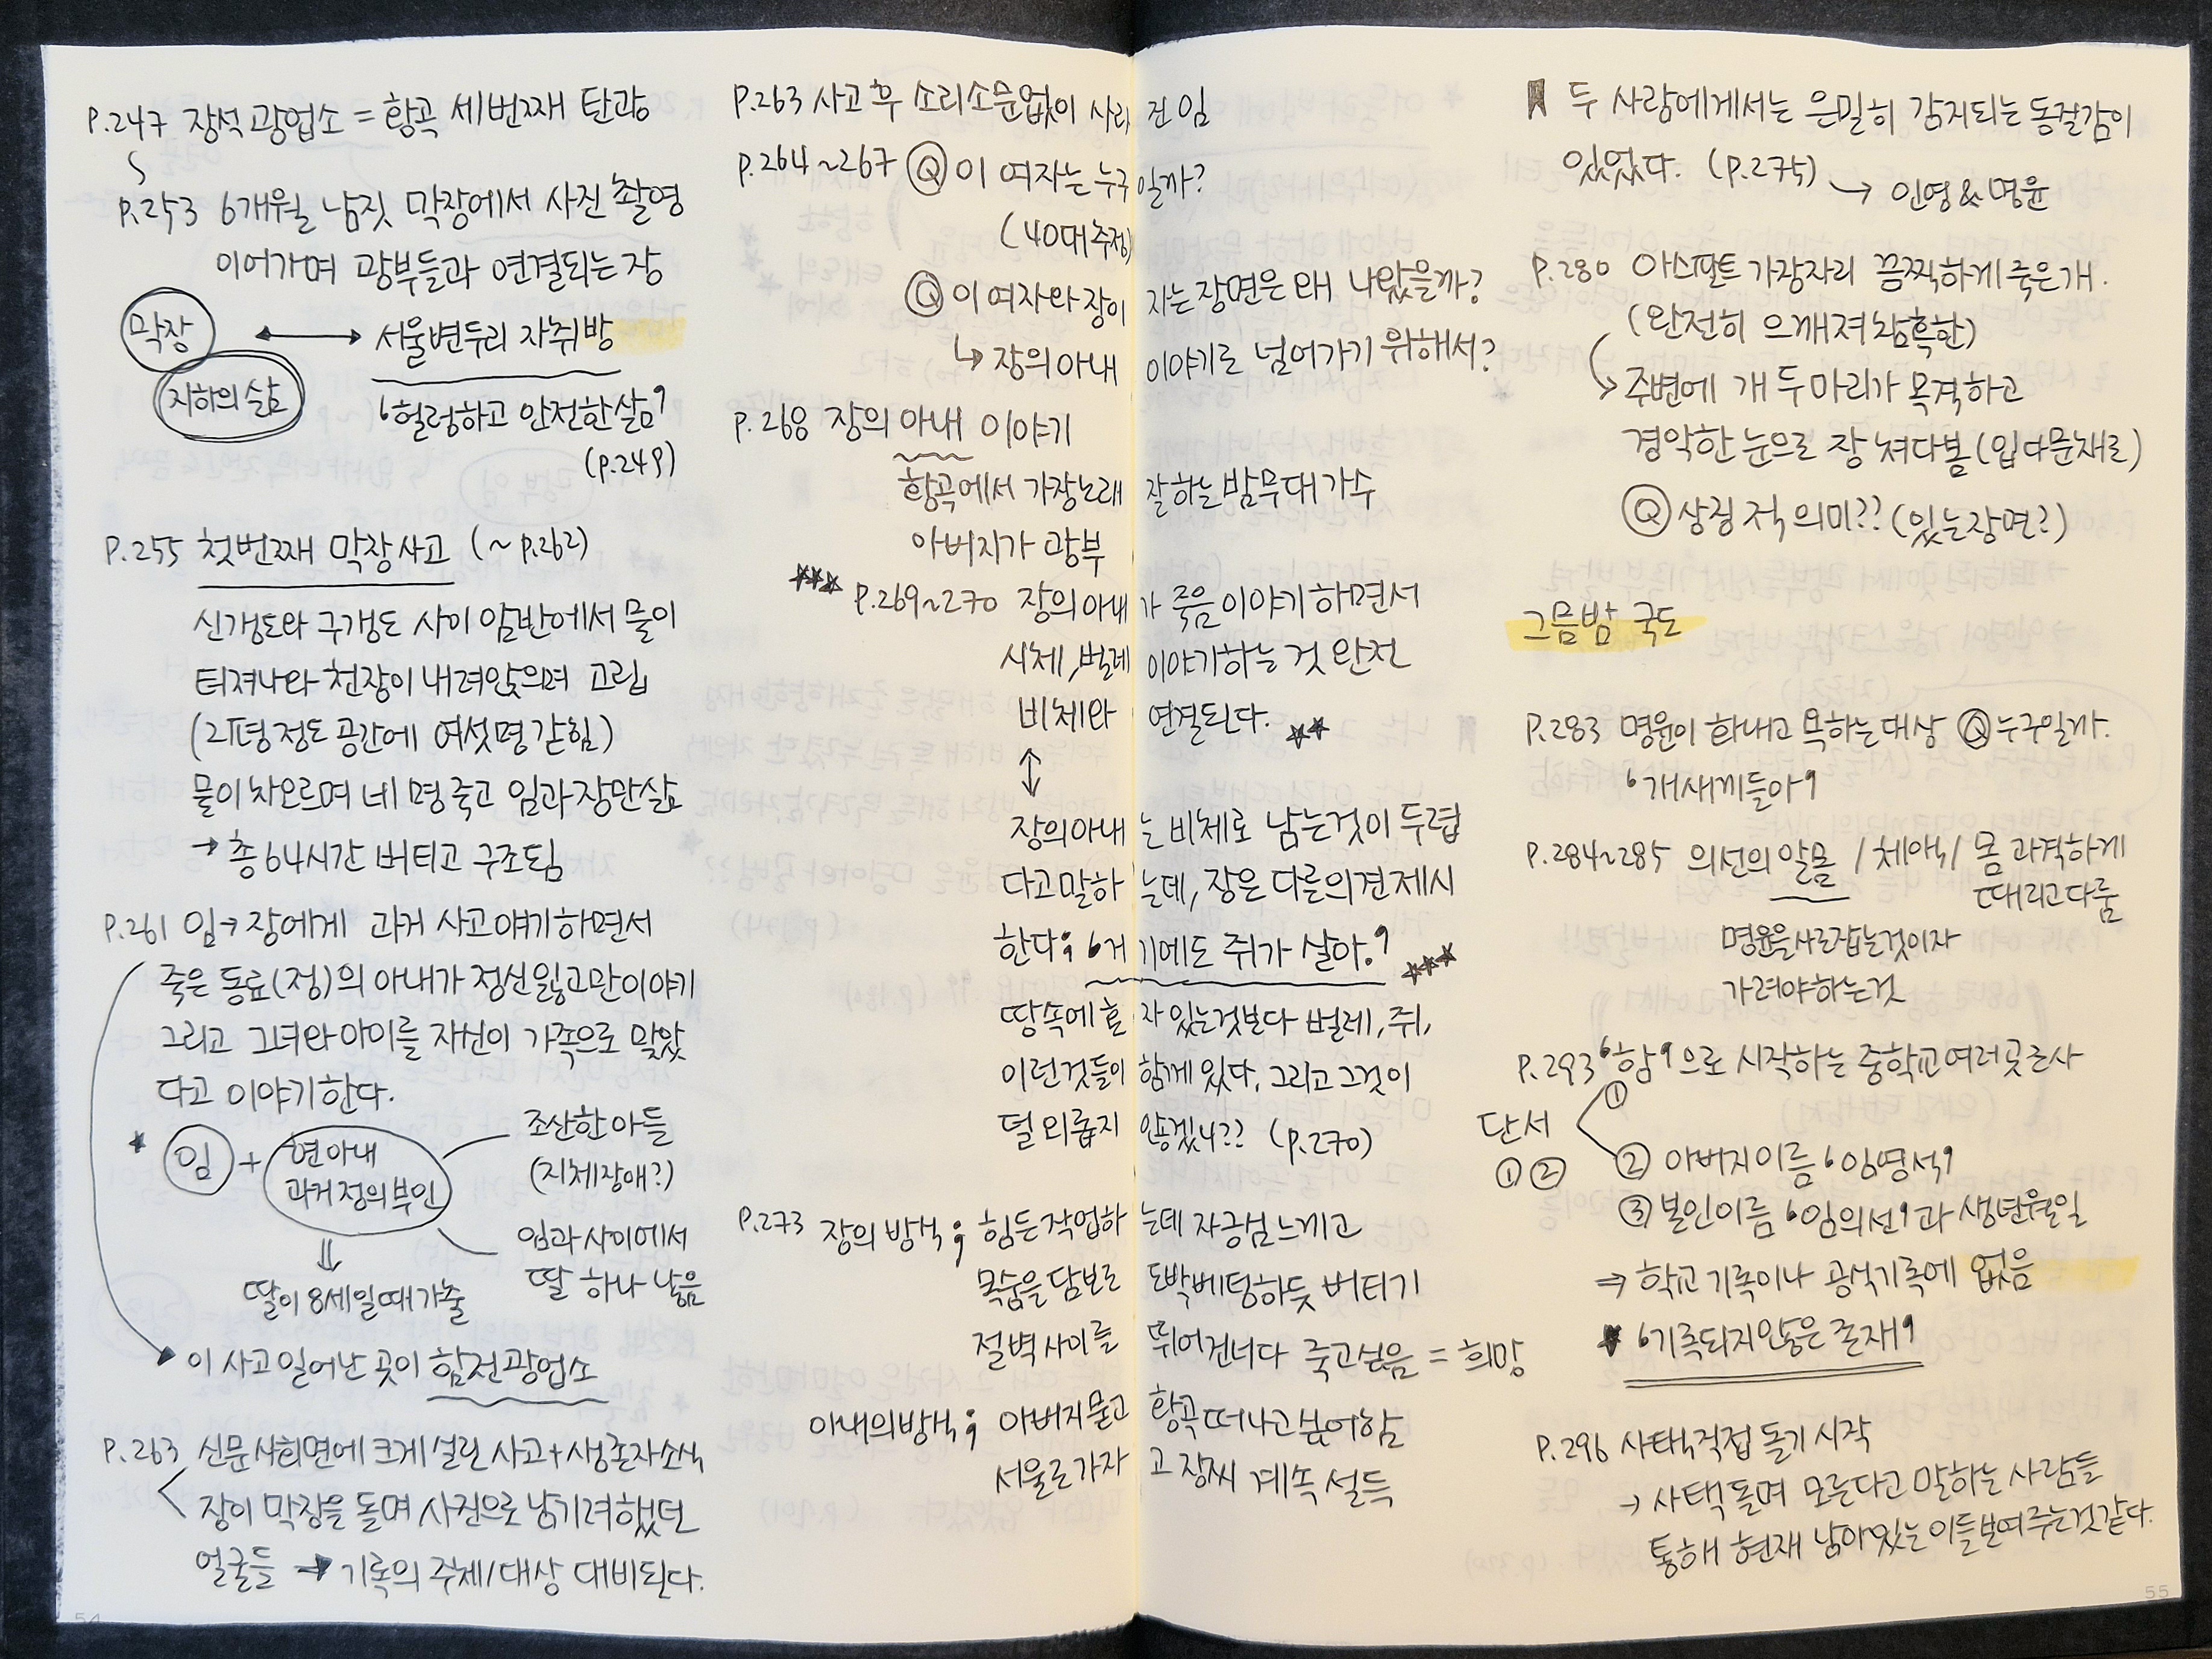 P.247 장석 광업소 = 황곡 세번째 탄광
P.253 6개월 남짓 막장에서 사진 촬영
이어가며 광부들과 연결되는 장
막장 ↔ 서울변두리 자취방
지하의 삶
'헐렁하고 안전한 삶'
(p.249)
P.255 첫번째 막장사고 (~p.262)
신갱도와 구갱도 사이 암반에서 물이
터져나와 천장이 내려앉으며 고립
(2평 정도 공간에 여섯명 갇힘)
물이 차오르며 네 명 죽고 임과 장만 삶
→ 총 64시간 버티고 구조됨
P.261 임→장에게 과거 사고얘기하면서
죽은 동료(정)의 아내가 정신잃고만 이야기
그리고 그녀와 아이를 자신이 가족으로 맞았
다고 이야기한다.
★ 임 + 현아내
과거 정의 부인
조산한 아들
(지체장애?)
임과 사이에서
딸 하나 낳음
⇓
딸이 8세일때 가출
이 사고 일어난 곳이 함전광업소
P.263 신문사회면에 크게 실린 사고+생존자 소식
장이 막장을 돌며 사진으로 남기려했던
얼굴들 → 기록의 주체/대상 대비된다.
54
P.263 사고 후 소리소문없이 사라진 임
P.264~267 Q 이 여자는 누구일까?
(40대 추정)
Q 이 여자와 장이 자는 장면은 왜 나왔을까?
↳ 장의 아내 이야기로 넘어가기 위해서?
P.268 장의 아내 이야기
황곡에서 가장 노래 잘하는 밤무대 가수
아버지가 광부
★★★ P.269~270 장의 아내가 죽음 이야기 하면서
시체, 벌레 이야기하는 것 완전
비체와 연결된다. ★★
↕
장의 아내는 비체로 남는것이 두렵
다고 말하는데, 장은 다른의견 제시
한다; '거기에도 쥐가 살아.' ★★★
땅속에 혼자 있는것보다 벌레, 쥐,
이런것들이 함께 있다. 그리고 그것이
덜 외롭지 않겠냐?? (p.270)
P.273 장의 방식; 힘든 작업하는데 자긍심 느끼고
목숨을 담보로 도박베팅하듯 버티기
절벽 사이를 뛰어건너다 죽고싶음 = 희망
아내의 방식; 아버지 묻고 황곡 떠나고 싶어함
서울로 가자고 장씨 계속 설득
두 사람에게서는 은밀히 감지되는 동질감이
있었다. (p.275) → 인영 & 명윤
P.280 아스팔트 가장자리 끔찍하게 죽은 개.
(완전히 으깨져 참혹한)
주변에 개 두 마리가 목격하고
경악한 눈으로 장 쳐다봄 (입 다문채로)
Q 상징적 의미?? (있는 장면?)
그믐밤 국도
P.283 명윤이 화내고 욕하는 대상 Q 누구일까.
'개새끼들아'
P.284~285 의선의 알몸 / 체액 / 몸 과격하게
때리고 다룸
명윤을 사로잡는 것이자
가려야하는 것
P.293 '함'으로 시작하는 중학교 여러 곳 조사
①
단서
①②
② 아버지 이름 '임영석'
③ 본인이름 '임의선'과 생년월일
⇒ 학교 기록이나 공식기록에 없음
★ '기록되지 않은 존재'
P.296 사택 직접 돌기 시작
→ 사택 돌며 모른다고 말하는 사람들
통해 현재 남아있는 이들 보여주는것 같다.
55